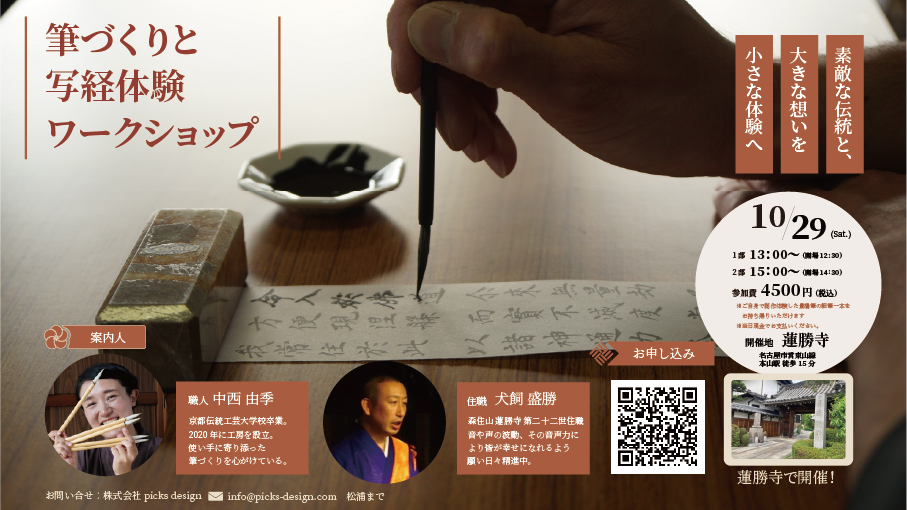 筆づくりと
写経体験
ワークショップ
素敵な伝統と、
大きな想いを
小さな体験へ
10/29 (Sat.)
1部 13:00〜 (開場12:30)
2部 15:00〜 (開場14:30)
参加費 4500円 (税込)
お持ち帰りいただけます
※当日現金でお支払いください。
開催地 蓮勝寺
名古屋市営東山線
本山駅 徒歩15分
案内人
職人 中西 由季
京都伝統工芸大学校卒業。
2020年に工房を設立。
使い手に寄り添った
筆づくりを心がけている。
住職 犬飼 盛勝
森住山 蓮勝寺 第二十二世住職
音や声の波動、その音声力に
より皆が幸せになれるよう
願い日々精進中。
お申し込み
蓮勝寺で開催!
お問い合せ：株式会社 picks design info@picks-design.com 松浦まで